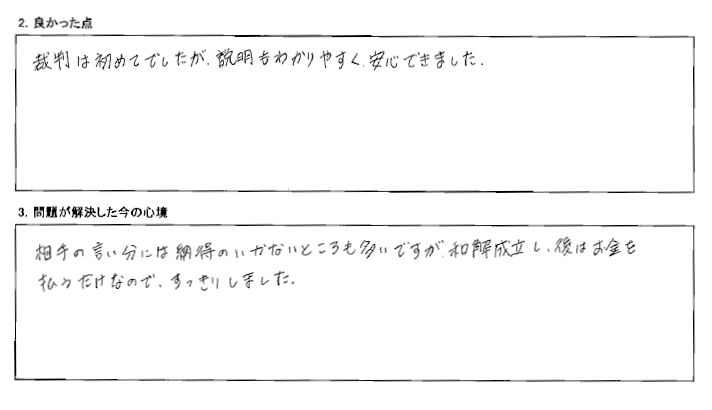 2. 良かった点
裁判は初めてでしたが、説明もわかりやすく、安心できました。
3. 問題が解決した今の心境
相手の言い分には納得のいかないところも多いですが、和解成立し、後はお金を
払うだけなので、すっきりしました。